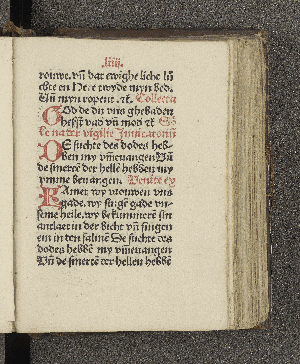 liiij.
rouwe. vñ dat ewighe liche lũ
chte en Here twyde myn bed.
Uñ myn ropent. ꝛc. Collecta
God de du uns ghebaden
hefst vad vñ mod ꝛc
le na der vigilie Inuitatoriũ
De suchte des dodes heb-
ben my vmmeuangen Uñ
de smerte der helle hebben my
ynne beuangen. Venite ex
Kamet wy vrouwen vns
gade. wy singẽ gade vn-
seme heile. wy bekummerẽ sin
antlaet in der bicht vñ singen
em in den salmẽ De suchte des
dodes hebbẽ my vmmeuangen
Uñ de smertẽ der hellen hebbẽ